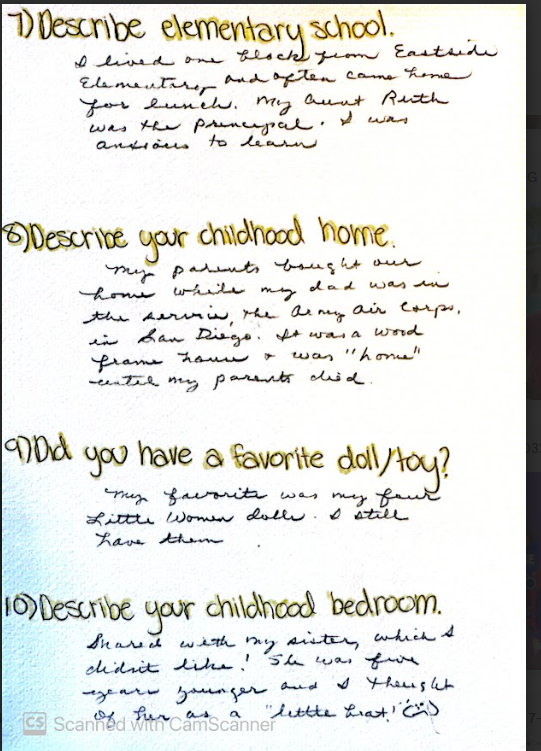 7) Describe elementary school.
I lived one block from Eastside
Elementary and often came home
for lunch. My Aunt Ruth
was the Principal. I was
anxious to learn
8) Describe your childhood home.
My parents bought our
home while my dad was in
the service, the Army Air Corps,
in San Diego. It was a wood
frame house & was "home"
until my parents died.
9) Did you have a favorite doll/toy?
My favorite was my four
Little Women dolls. I still
have them.
10) Describe your childhood bedroom.
Shared with my sister, which I
didn't like! She was five
years younger and I thought
of her as a "little brat!"
CS Scanned with CamScanner